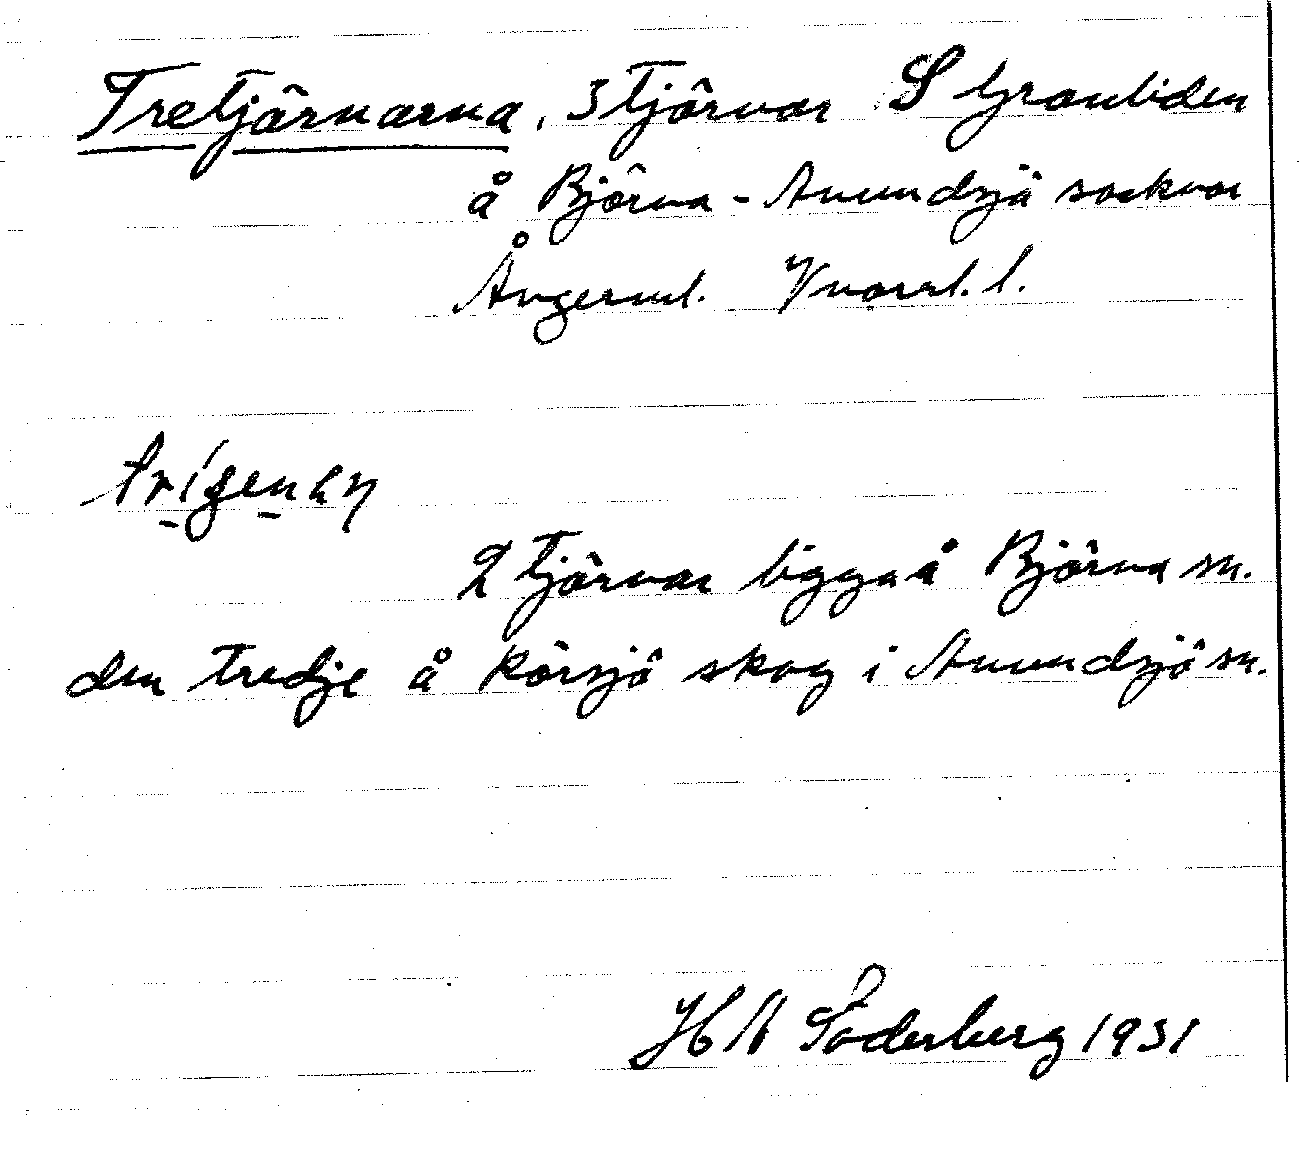 Tretjärnarna, 3 tjärnar S Granliden
å Björna - Anundsjö socknar
Ångerml. Vnorrl. l.
2 tjärnar ligga å Björna sn.
den tredje å Körsjö skog i Anundsjö sn.
H A Söderberg 1931